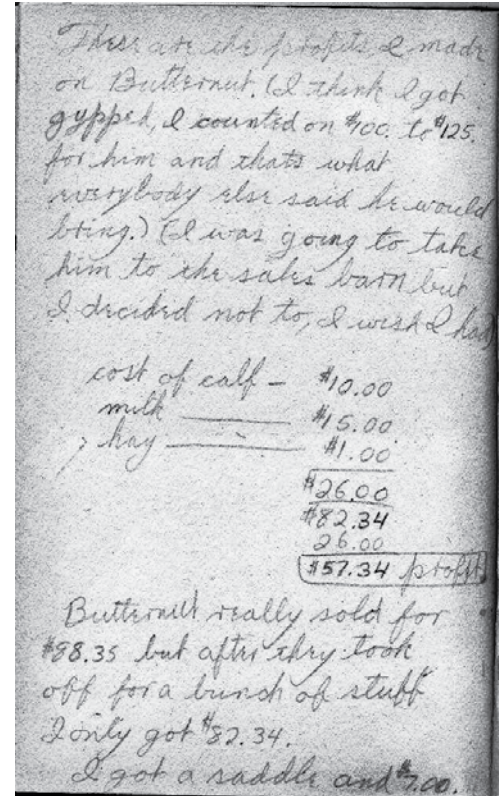 These are the profits I made
on Butternut. (I think I got
gypped, I counted on $100. to $125.
for him and thats what
everybody else said he would
bring.) (I was going to take
him to the sales barn but
I decided not to, I wish I had)
cost of calf - $10.00
milk $15.00
hay $1.00
$26.00
$82.34
26.00
$57.34 profit
Butternut really sold for
$88.35 but after they took
off for a bunch of stuff
I only got $82.34.
I got a saddle and $7.00.